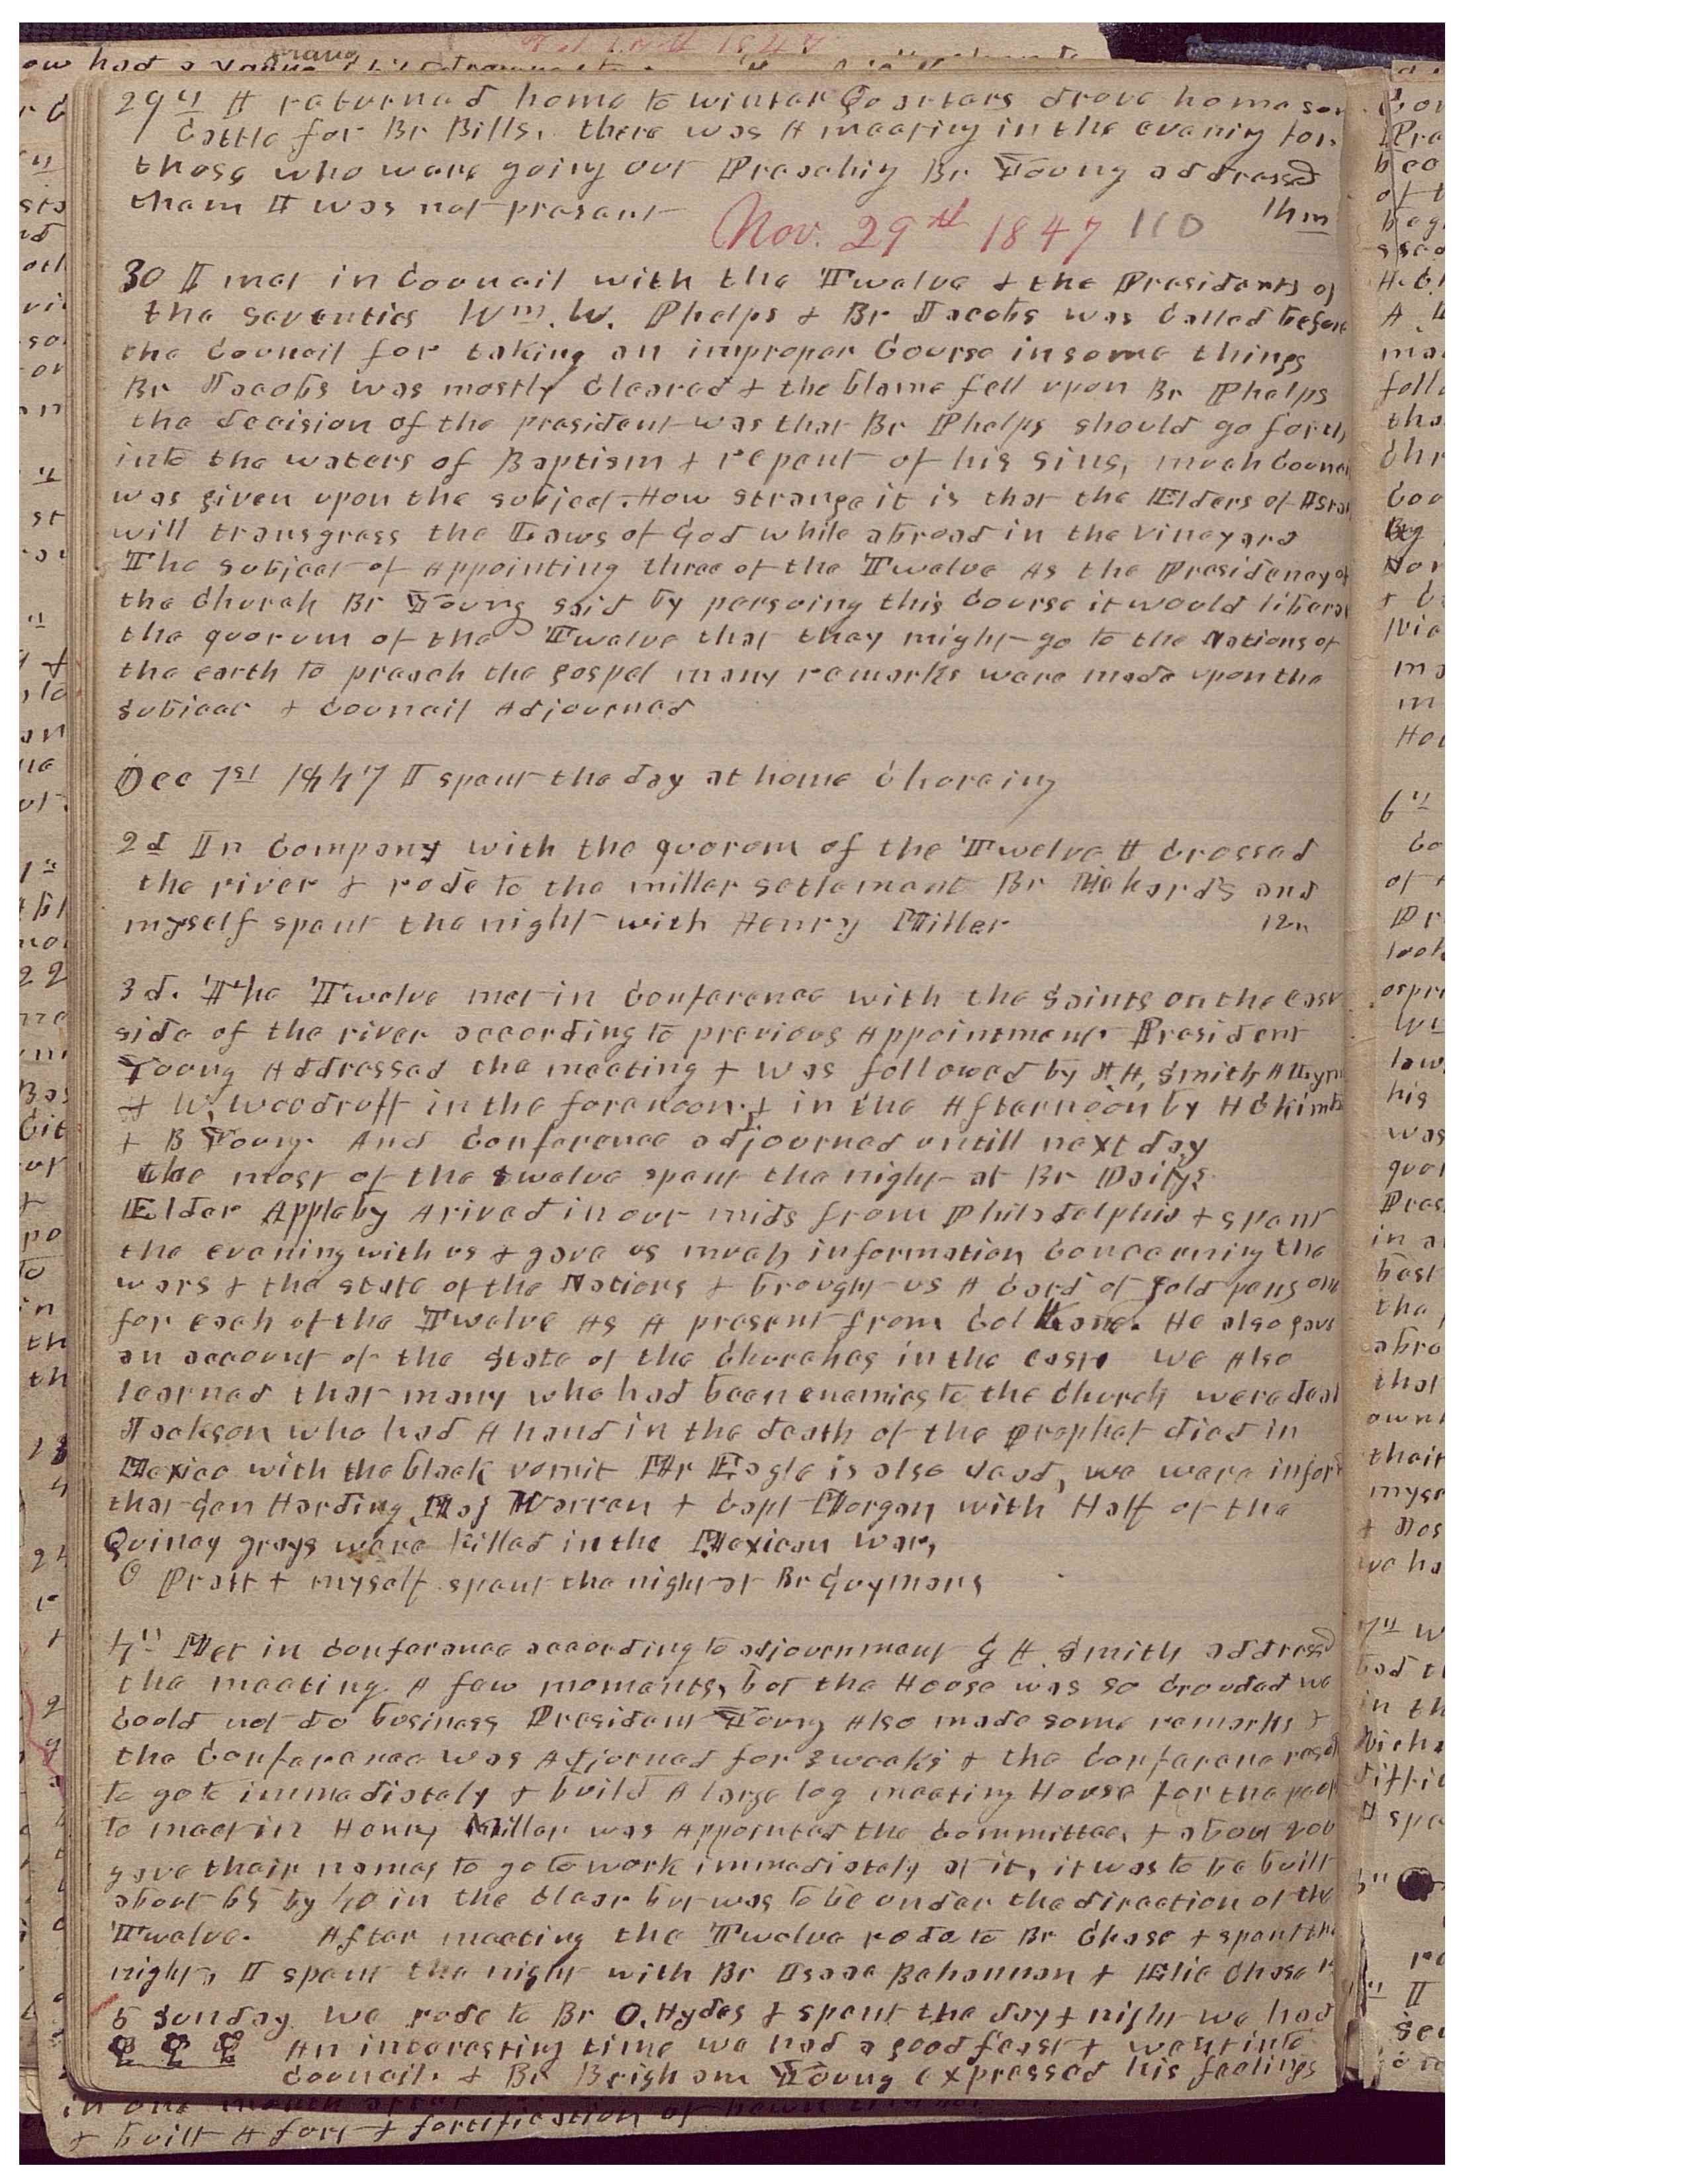 29th I returned home to winter Quarters drove home som
Cattle for Br Bills. there was A meeting in the evening for
those who were going out Preaching Br Young addressed
them I was not present 1hm
Nov. 29th 1847 110
30 I met in Council with the Twelve + the Presidents of
the seventies Wm. W. Phelps + Br Jacobs was Called before
the Council for taking an improper Course in some things
Br Jacobs was mostly Cleared + the blame fell upon Br Phelps
the decision of the president was that Br Phelps should go forth
into the waters of Baptism + repent of his sins, much Councel
was given upon the subject. How strange it is that the Elders of Israel
will transgress the Laws of God while abroad in the vineyard
The subject of Appointing three of the Twelve As the Presidency of
the Church Br Young said by persuing this Course it would liberat
the quorum of the Twelve that they might go to the Nations of
the earth to preach the gospel many remarks were made upon the
subject + Council Adjourned
Dec 1st 1847 I spent the day at home Choreing
2d In Company with the quorum of the Twelve I Crossed
the river + rode to the miller setlement Br Richards and
myself spent the night with Henry Miller 12m
3d. The Twelve met in Conference with the Saints on the east
side of the river according to previous Appointment President
Young Addressed the meeting + was followed by A Smith A Lym
+ W. Woodruff in the forenoon. + in the Afternoon by H C Kimb
+ B Young. And Conference adjourned untill next day
the most of the twelve spent the night at Br Dailys
Elder Appleby Arived in our mids from Philadelphia + spent
the evening with us + gave us much information Concerning the
wars + the state of the Nations + brought us A Card of gold pens one
for each of the Twelve As A present from Col Kane. He also gave
an account of the State of the Churches in the east we Also
learned that many who had been enemies to the Church were dead
Jackson who had A hand in the death of the prophet died in
Mexico with the black vomit Mr Eagle is also dead, we were inford
that Gen Harding Maj Warren + Capt Morgan with Half of the
Quincy grays were killed in the Mexican war,
O Pratt + myself spent the night at Br Guymans
4th Met in Conference according to adjournment G A. Smith addresd
the meeting A few moments, but the House was so Crouded we
Could not do business President Young Also made some remarks +
the Conference was Adjorned for 3 weeks + the Conference resd
to go to immediately + build A large log meeting House for the peop
to meet in Henry Miller was Appointed the Committee, + about 200
gave their names to go to work immediately at it, it was to be built
about 65 by 40 in the Clear but was to be under the direction of the
Twelve. After meeting the Twelve rode to Br Chase + spent the
night, I spent the night with Br Isaac Bohannan + Elic Chase
5 Sunday we rode to Br O. Hydes + spent the day + night we had
An interesting time we had a good feast + went into
Council. + Br Brigham Young expressed his feelings
+ built A fort + fortification of